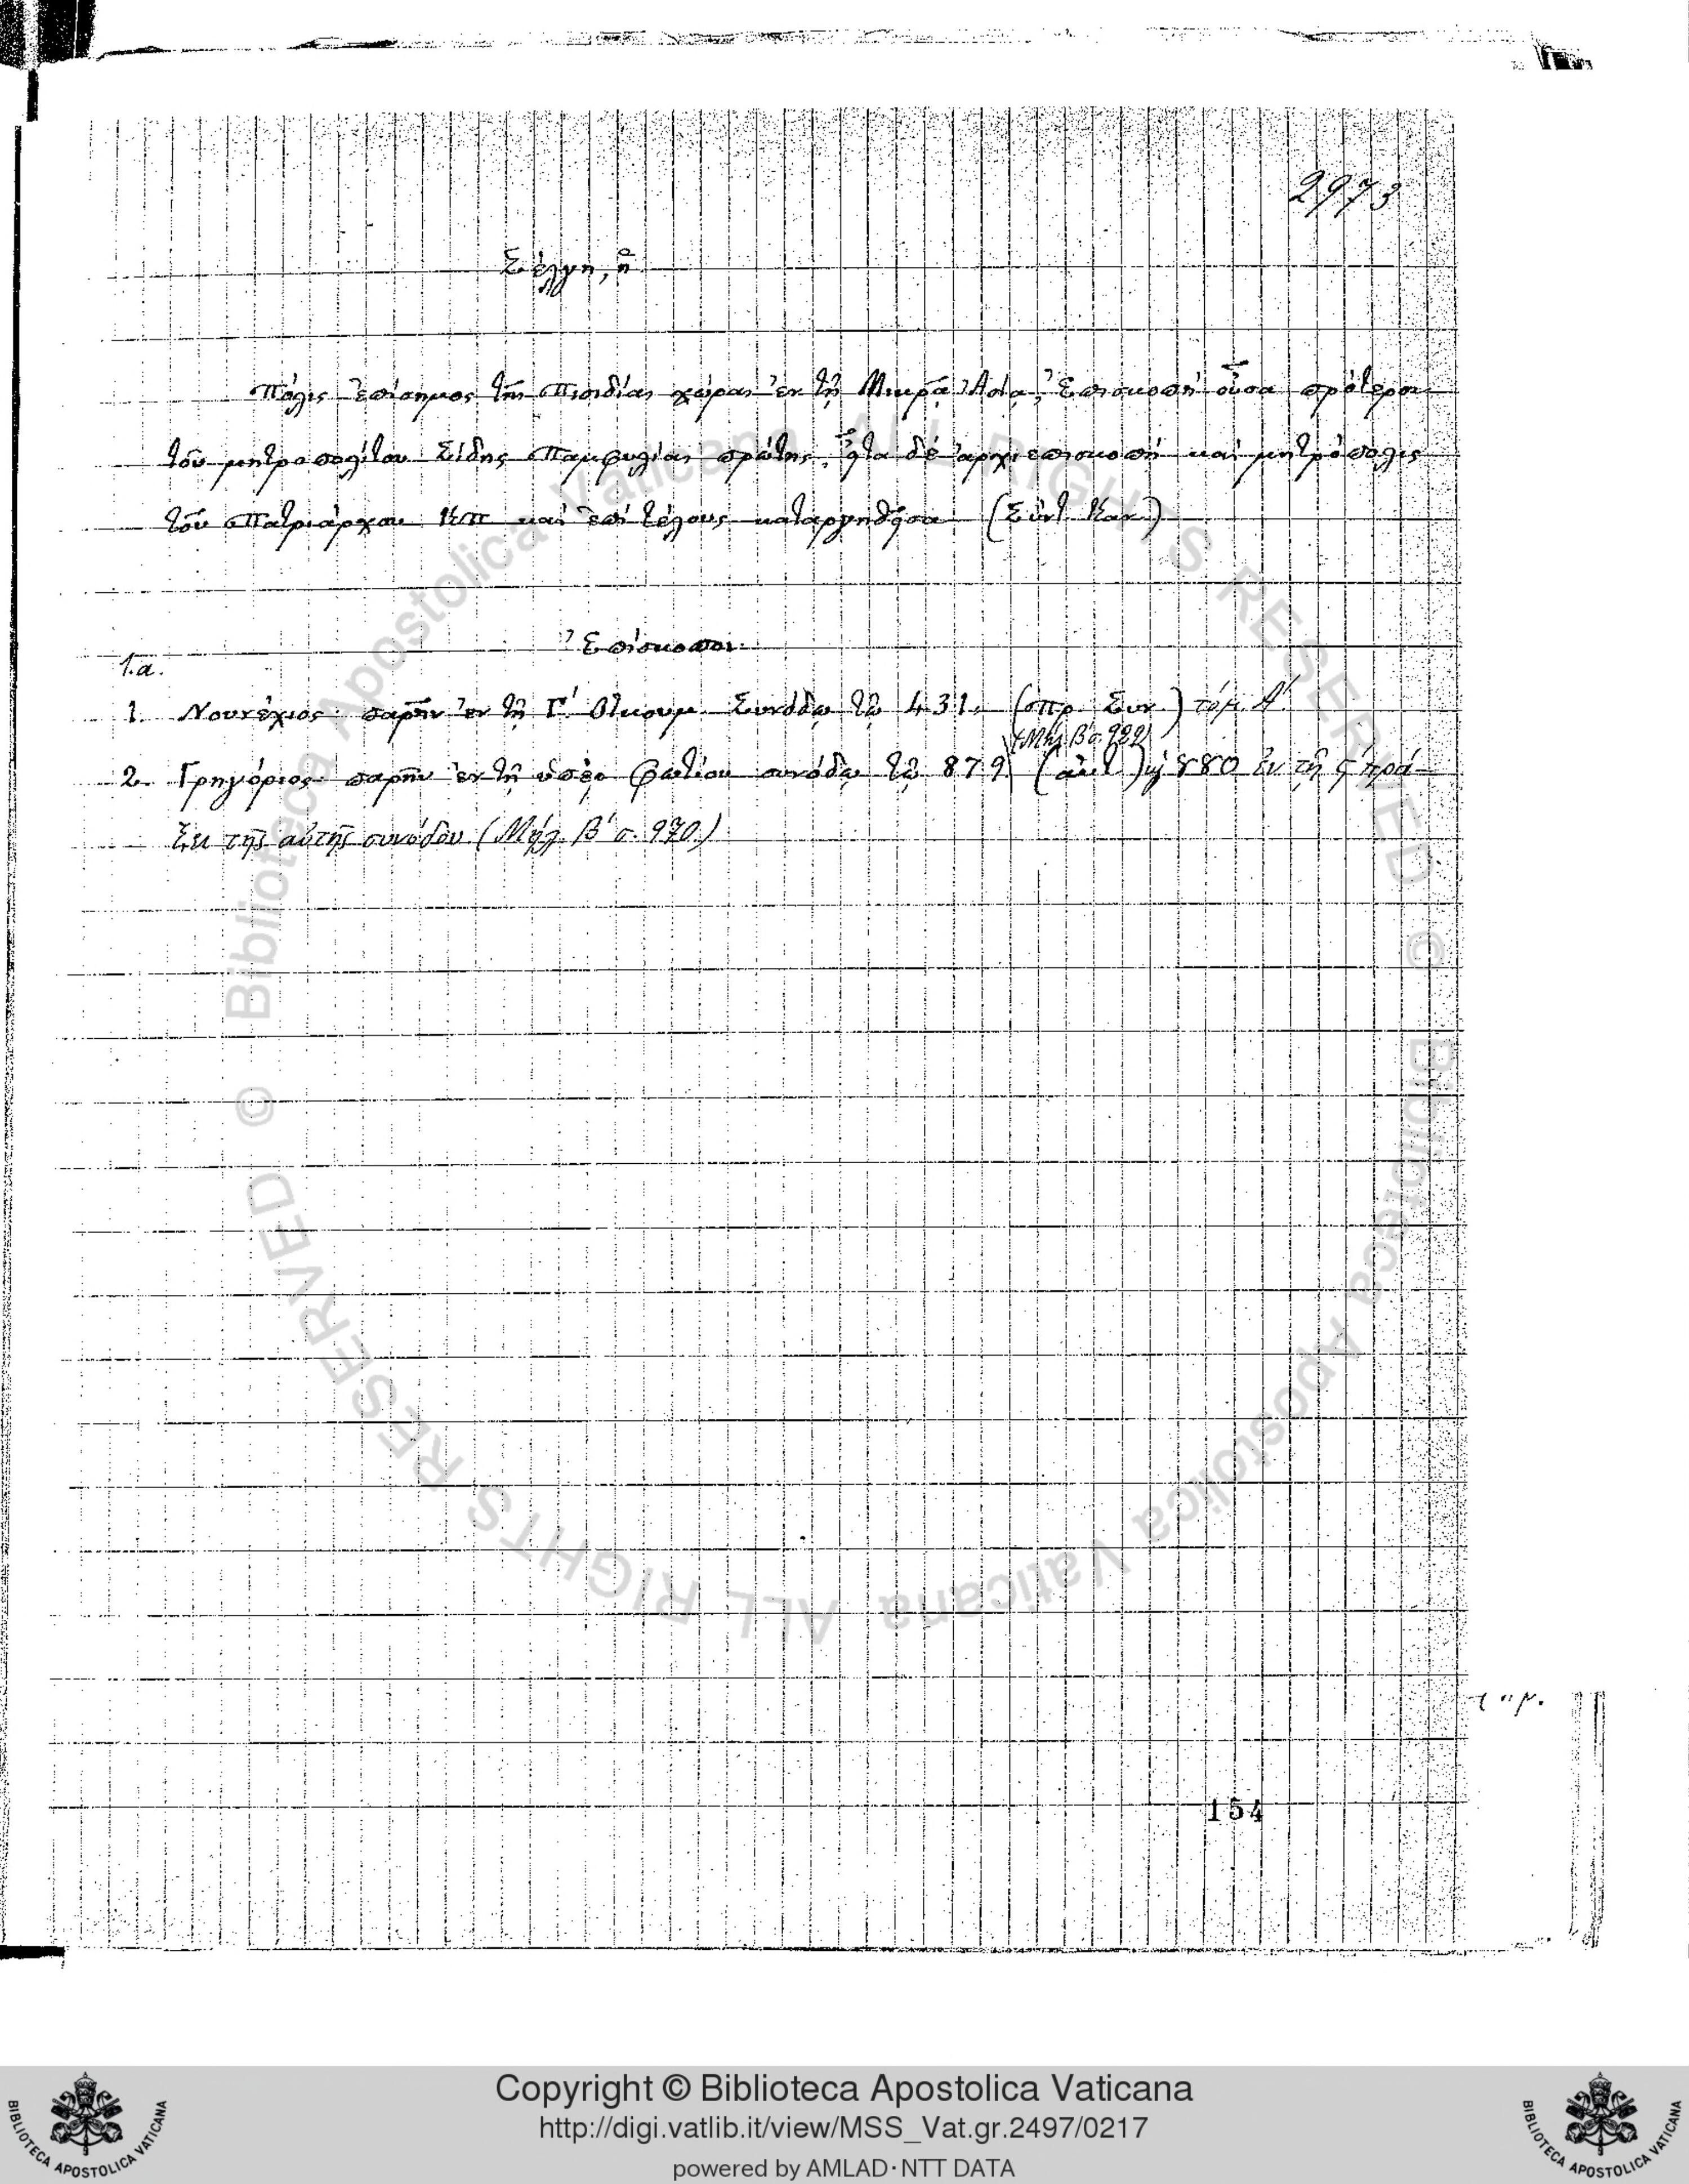 2973
Σέλγη, ἡ
Πόλις ἐπίσημος τῆς Πισιδίας χώρας ἐν τῇ Μικρᾷ Ἀσίᾳ, Ἐπισκοπὴ οὖσα πρότερον
τοῦ μητροπολίτου Σίδης Παμφυλίας πρώτης, εἶτα δὲ ἀρχιεπισκοπὴ καὶ μητρόπολις
τοῦ Πατριάρχου Κπ καὶ ἐπὶ τέλους καταργηθεῖσα (Σύντ. Καν.)
Ἐπίσκοποι
1.α.
1. Νουνέχιος παρῆν ἐν τῇ Γ΄ Οἰκουμ. Συνόδῳ τῷ 431. (Πρ. Συν.) τόμ. Α΄.
(Μήλ. Β΄ σ. 922)
2. Γρηγόριος παρῆν ἐν τῇ ὑπὲρ Φωτίου συνόδῳ τῷ 879 (αὐτ.) ϗ 880 ἐν τῇ ϛ πρά-
ξει τῆς αὐτῆς συνόδου (Μήλ. Β΄ σ. 970.)
154
© Biblioteca Apostolica Vaticana ALL RIGHTS RESERVED © Biblioteca Apostolica Vaticana ALL RIGHTS RESERVED
Copyright © Biblioteca Apostolica Vaticana
http://digi.vatlib.it/view/MSS_Vat.gr.2497/0217
powered by AMLAD·NTT DATA
BIBLIOTECA APOSTOLICA VATICANA
BIBLIOTECA APOSTOLICA VATICANA